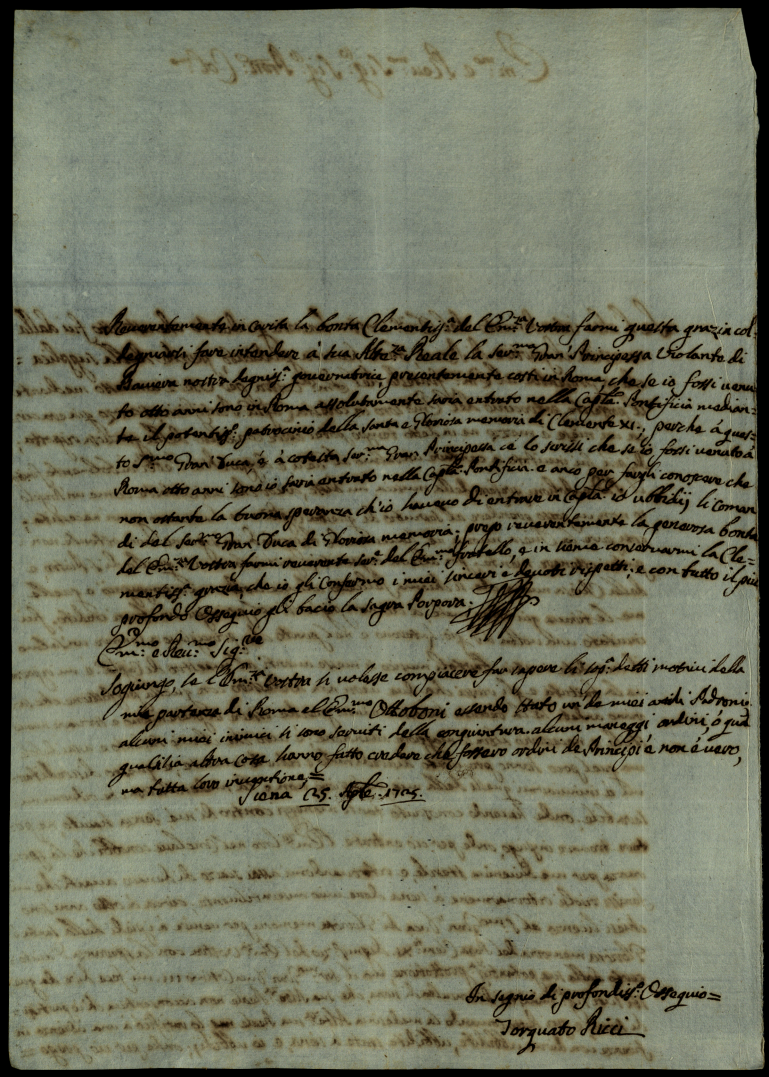 Reverentemente in carita la bonta Clementiss.ᵃ del Em.ᶻᵃ Vostra farmi questa grazia col
degniarsi fare intendere à sua Altez.ᵃ Reale la Ser.ᵐᵃ Gran Principessa Violante di
Baviera nostra degnis.ᵃ governatrice presentemente costi in Roma, che se io fossi venu
to otto anni sono in Roma assolutamente saria entrato nella Capl.ᵃ Pontificia median-
te il potentis.ᵒ patrocinio della santa e Gloriosa memoria di Clemente XI., perche à ques-
to S.ᵐᵒ Gran Duca, e à cotesta Ser.ᵐᵃ Gran Principessa ce lo scrissi che se io fossi venuto à
Roma otto anni sono io saria entrato nella Capl.ᵃ Pontificia. e anco per fargli conoscere che
non ostante la buona speranza ch'io havevo di entrare in Capl.ᵃ io ubbidij li Coman
di del Ser.ᵐᵒ Gran Duca di Gloriosa memoria; prego reverentemente la generosa bonta
del Em.ᶻᵃ Vostra farmi reverente ser.ᵉ del Em.ᵐᵒ fratello, e in sieme conservarmi la Cle=
mentiss.ᵃ grazia, che io gli Confermo i miei sinceri e devoti rispetti, e con tutto il più
profondo Ossequio gli bacio la sagra Porpora.
Em.ᵐᵒ e Rev.ᵐᵒ Sig.ʳᵉ
Sogiungo, se l'Em.ᶻᵃ Vostra si volesse compiacere far sapere li sog.ᵗⁱ detti motivi della
mia partenza di Roma al Em.ᵐᵒ Ottoboni essendo stato un de miei antichi Padroni.
alcuni miei inimici si sono serviti della congiuntura. alcuni maneggi ordini, ò qual
qualsisia altra cosa, hanno fatto credere che fossero ordini de Principi e non è vero,
ma tutta loro invenzione,=
Siena 25. 1725.
In segnio di profondiss.ᵒ Ossequio=
Torquato Ricci